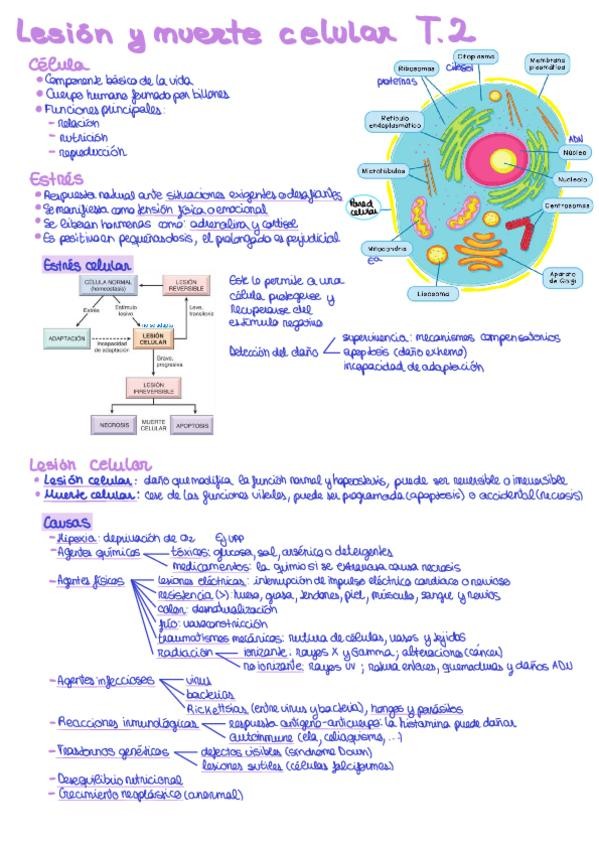 Lesión y muerte celular T.2
Célula
• Componente básico de la vida
• Cuerpo humano formado por billones
• Funciones principales:
- relación
- nutrición
- reproducción
Citoplasma
citosol
Ribosomas
proteínas
Membrana plasmática
Retículo endoplasmático
ADN
Núcleo
Microtúbulos
Nucleolo
Pared celular
Centrosomas
Mitocondria
Aparato de Golgi
Lisosoma
Estrés
• Respuesta natural ante situaciones exigentes o desafiantes
• Se manifiesta como tensión física o emocional
• Se liberan hormonas como: adrenalina y cortisol
• Es positivo en pequeñas dosis, el prolongado es perjudicial
Estrés celular
CÉLULA NORMAL (homeostasis)
LESIÓN REVERSIBLE
Estrés
Estímulo lesivo
Leve, transitoria
no se adapta
ADAPTACIÓN
Incapacidad de adaptación
LESIÓN CELULAR
Grave, progresiva
LESIÓN IRREVERSIBLE
NECROSIS
MUERTE CELULAR
APOPTOSIS
Esto le permite a una
célula protegerse y
recuperarse del
estímulo negativo
Detección del daño
supervivencia: mecanismos compensatorios
apoptosis (daño extremo)
incapacidad de adaptación
Lesión celular
• Lesión celular: daño que modifica la función normal y hoeostasis, puede ser reversible o irreversible
• Muerte celular: cese de las funciones vitales, puede ser programada (apoptosis) o accidental (necrosis)
Causas
- Hipoxia: deprivación de O2 Ej UPP
- Agentes químicos
tóxicos: glucosa, sal, arsénico o detergentes
medicamentos: la quimio si se extravasa causa necrosis
- Agentes físicos
lesiones eléctricas: interrupción de impulso eléctrico cardiaco o nervioso
resistencia (>): hueso, grasa, tendones, piel, músculo, sangre y nervios
calor: desnaturalización
frío: vasoconstricción
traumatismos mecánicos: rutura de células, vasos y tejidos
radiación
ionizante: rayos X y Gamma; alteraciones (cáncer)
no ionizante: rayos UV; rotura enlaces, quemaduras y daños ADN
- Agentes infecciosos
virus
bacterias
Rickettsias (entre virus y bacteria), hongos y parásitos
- Reacciones inmunológicas
respuesta antígeno-anticuerpo: la histamina puede dañar
autoinmune (ela, celiaquismo, ...)
- Trastornos genéticos
defectos visibles (síndrome Down)
lesiones sutiles (células falciformes)
- Desequilibrio nutricional
- Crecimiento neoplásico (anormal)